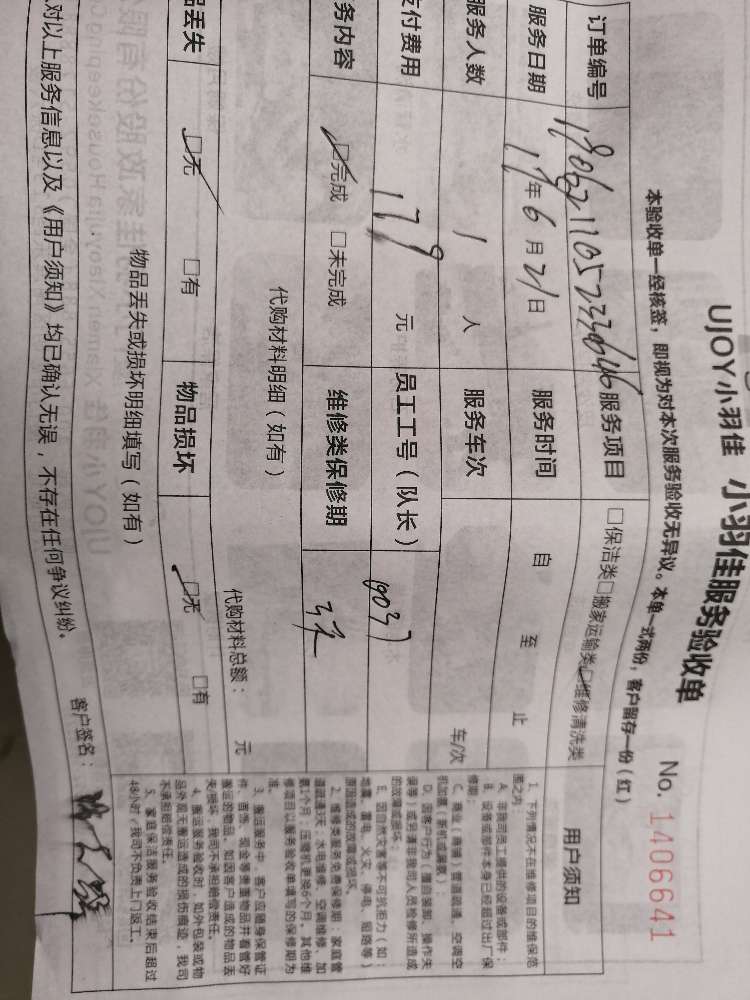 UJOY小羽佳 小羽佳服务验收单
No. 1406641
本验收单一经核签，即视为对本次服务验收无异议。本单一式两份，客户留存一份（红）
订单编号
服务项目 □保洁类□搬家运输类□维修清洗类
服务日期 17年6月21日 服务时间 自 至 止
服务人数 1 人 服务车次 车/次
支付费用 179 元 员工工号（队长）
务内容 □完成 □未完成 维修类保修期
代购材料明细（如有） 代购材料总额： 元
品丢失 □无 □有 物品损坏 □无 □有
物品丢失或损坏明细填写（如有）
对以上服务信息以及《用户须知》均已确认无误，不存在任何争议纠纷。
客户签名：
用户须知
1、下列情况不在维修项目的维保范
围之内：
A、非我司员工提供的设备或部件；
B、设备或部件本身已经超过出厂保
修期；
C、商业（商铺）管道疏通、空调空
机加氟（新机或漏氟）；
D、因客户行为（擅自装卸、操作失
误等）或另请非我司人员检修所造成
的故障或损坏；
E、因自然灾害等不可抗拒力（如：
地震、雷电、火灾、停电、短路等）
原因造成的故障或损坏。
2、维修类服务免费保修期：家庭管
道疏通3天；水电维修、空调维修、加
氟1个月；压缩机更换6个月。其他维
修项目以服务验收单填写的保修期为
准。
3、搬运服务中，客户应随身保管证
件、首饰、现金等贵重物品并看管好
搬运的物品，如因客户造成的物品丢
失/损坏，我司不承担赔偿责任。
4、搬运服务验收时，如外包装或物
品外观无搬运造成的损伤痕迹，我司
不承担赔偿责任。
5、家庭保洁服务验收结束后超过
48小时，我司不负责上门返工。